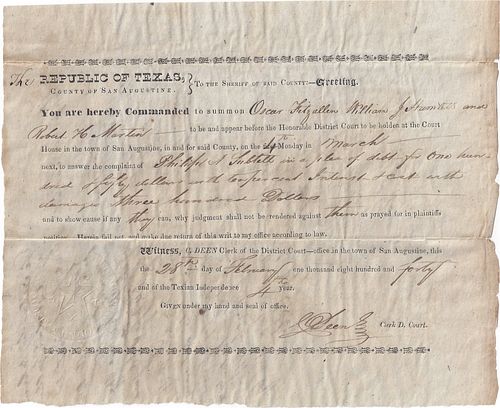 The REPUBLIC OF TEXAS,
COUNTY OF SAN AUGUSTINE. } TO THE SHERIFF OF SAID COUNTY:—Greeting.
You are hereby Commanded to summon Oscar Fitzallen William J and
Robert C Martin to be and appear before the Honorable District Court to be holden at the Court
House in the town of San Augustine, in and for said County, on the Monday in March
next, to answer the complaint of Philip A Sublett in a plea of debt for One hun
dred & fifty dollars with ten per cent Interest & cost with
damages three hundred Dollars
and to show cause if any they can, why judgment shall not be rendered against them as prayed for in plaintiffs
petition. Herein fail not, and make due return of this writ to my office according to law.
Witness, C. DEEN Clerk of the District Court—office in the town of San Augustine, this
the 28th day of February one thousand eight hundred and forty
and of the Texian Independence 4th year.
Given under my hand and seal of office.
C Deen Clerk D. Court.